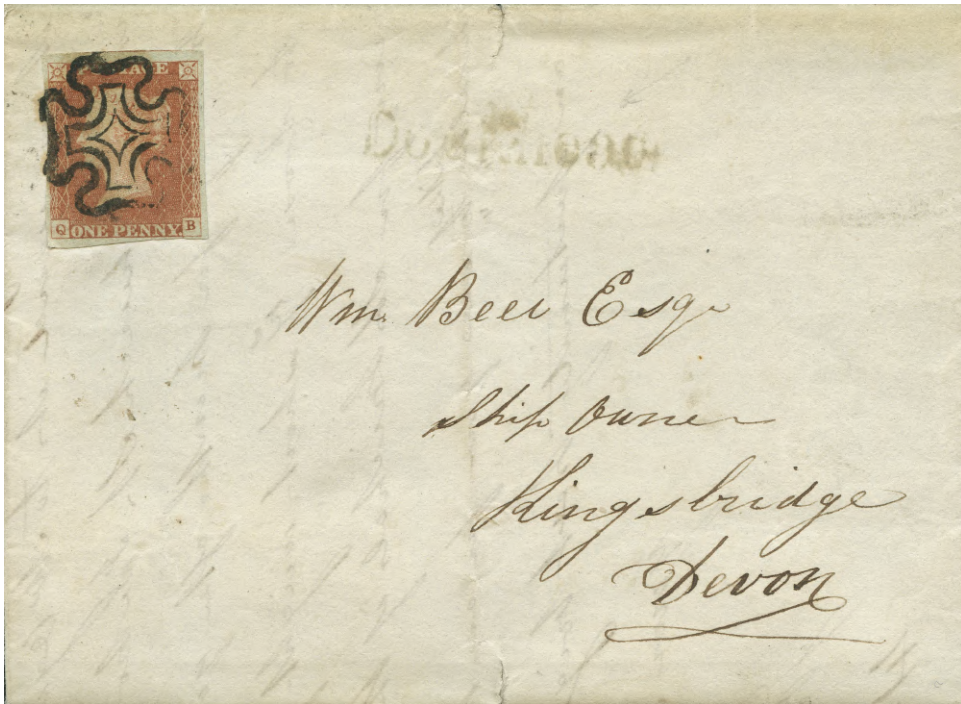 POSTAGE
Q ONE PENNY. B
Wm. Beer Esqr
Ship Owner
Kingsbridge
Devon